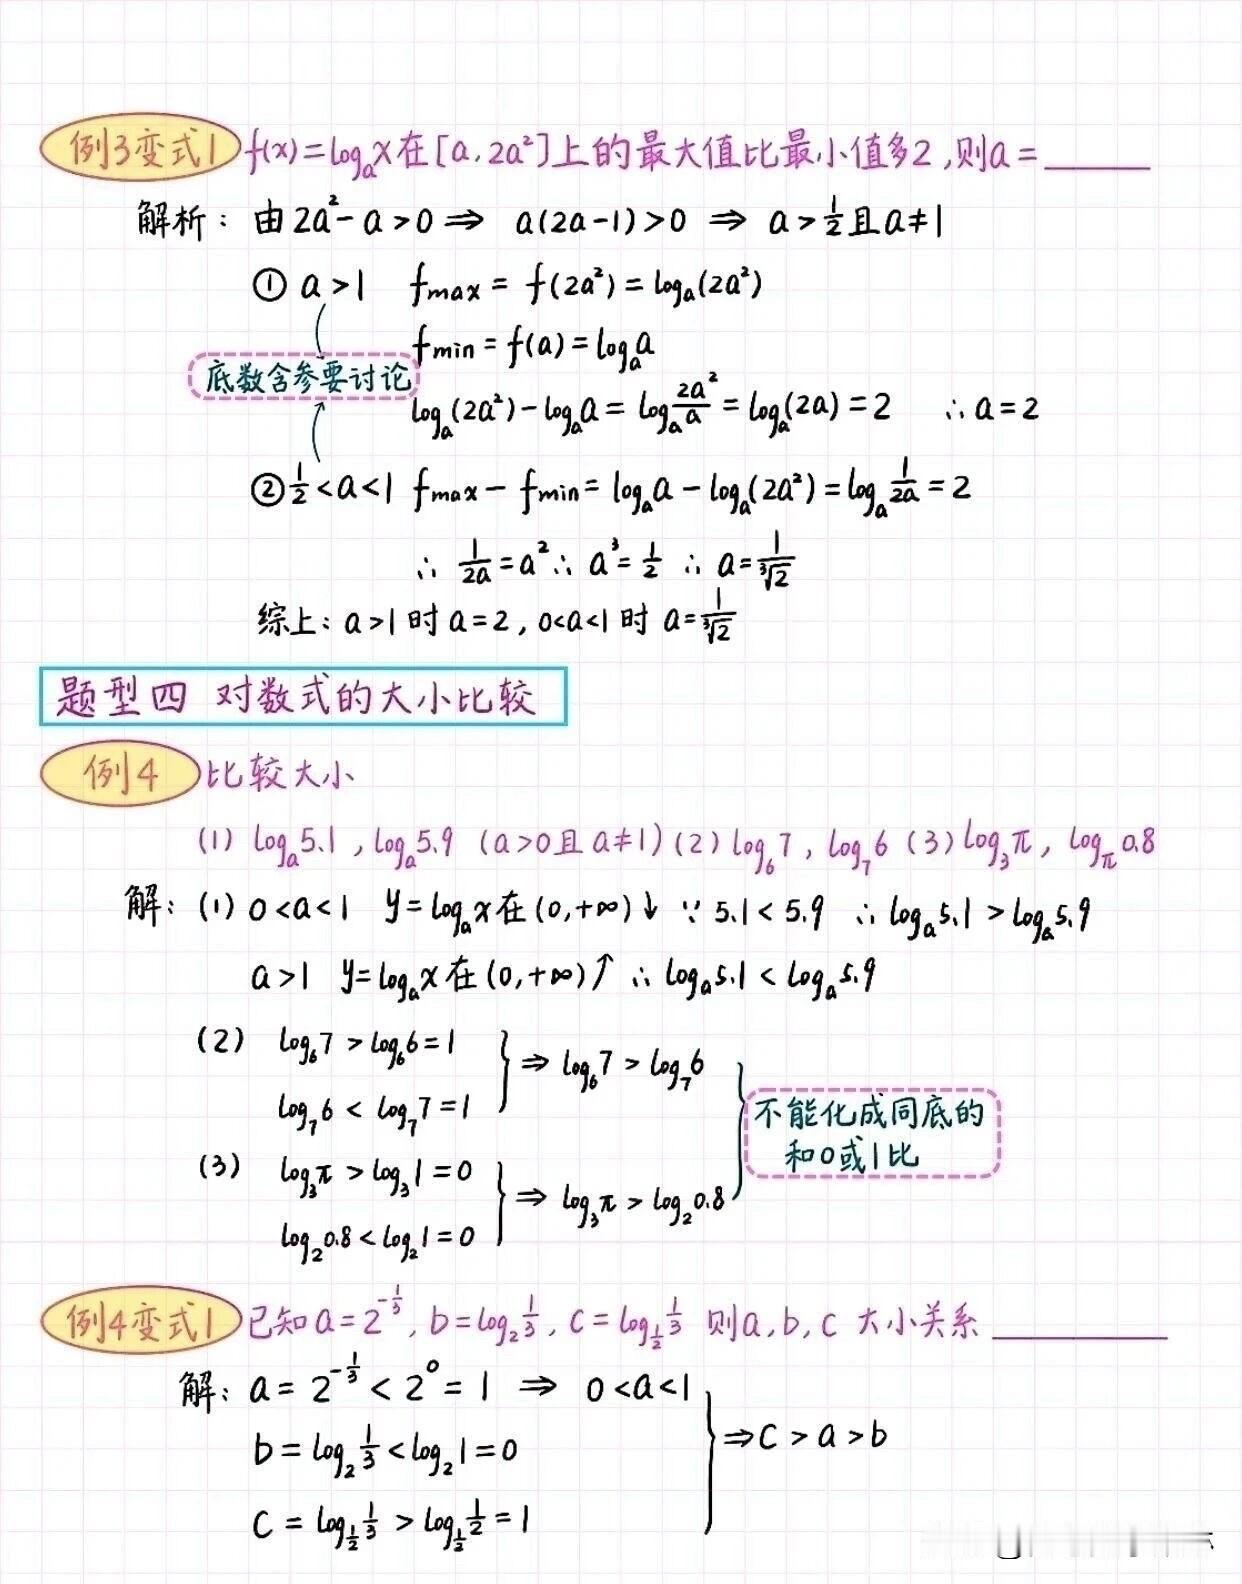 例3变式1 f(x)=logₐx在[a,2a²]上的最大值比最小值多2,则a=______
解析:由2a²-a>0⇒ a(2a-1)>0 ⇒ a>1/2且a≠1
① a>1 fmax=f(2a²)=logₐ(2a²)
fmin=f(a)=logₐa
底数含参要讨论
logₐ(2a²)-logₐa=logₐ2a²/a=logₐ(2a)=2 ∴a=2
②1/2<a<1 fmax-fmin=logₐa-logₐ(2a²)=logₐ1/2a=2
∴ 1/2a=a²∴ a³=1/2 ∴ a=1/³√2
综上:a>1时a=2,0<a<1时 a=1/³√2
题型四 对数式的大小比较
例4 比较大小
(1) logₐ5.1,logₐ5.9 (a>0且a≠1)(2)log₆7,log₇6 (3)log₃π,log_π0.8
解:(1) 0<a<1 y=logₐx在(0,+∞)↓ ∵5.1<5.9 ∴logₐ5.1>logₐ5.9
a>1 y=logₐx在(0,+∞)↑ ∴logₐ5.1<logₐ5.9
(2) log₆7>log₆6=1
log₇6<log₇7=1
⇒log₆7>log₇6
(3) log₃π>log₃1=0
log₂0.8<log₂1=0
⇒log₃π>log₂0.8
不能化成同底的
和0或1比
例4变式1 已知a=2^(-1/3),b=log₂1/3,c=log_(1/2)1/3 则a,b,c 大小关系 ______
解:a=2^(-1/3)<2⁰=1 ⇒ 0<a<1
b=log₂1/3<log₂1=0
c=log_(1/2)1/3>log_(1/2)1/2=1
⇒c>a>b